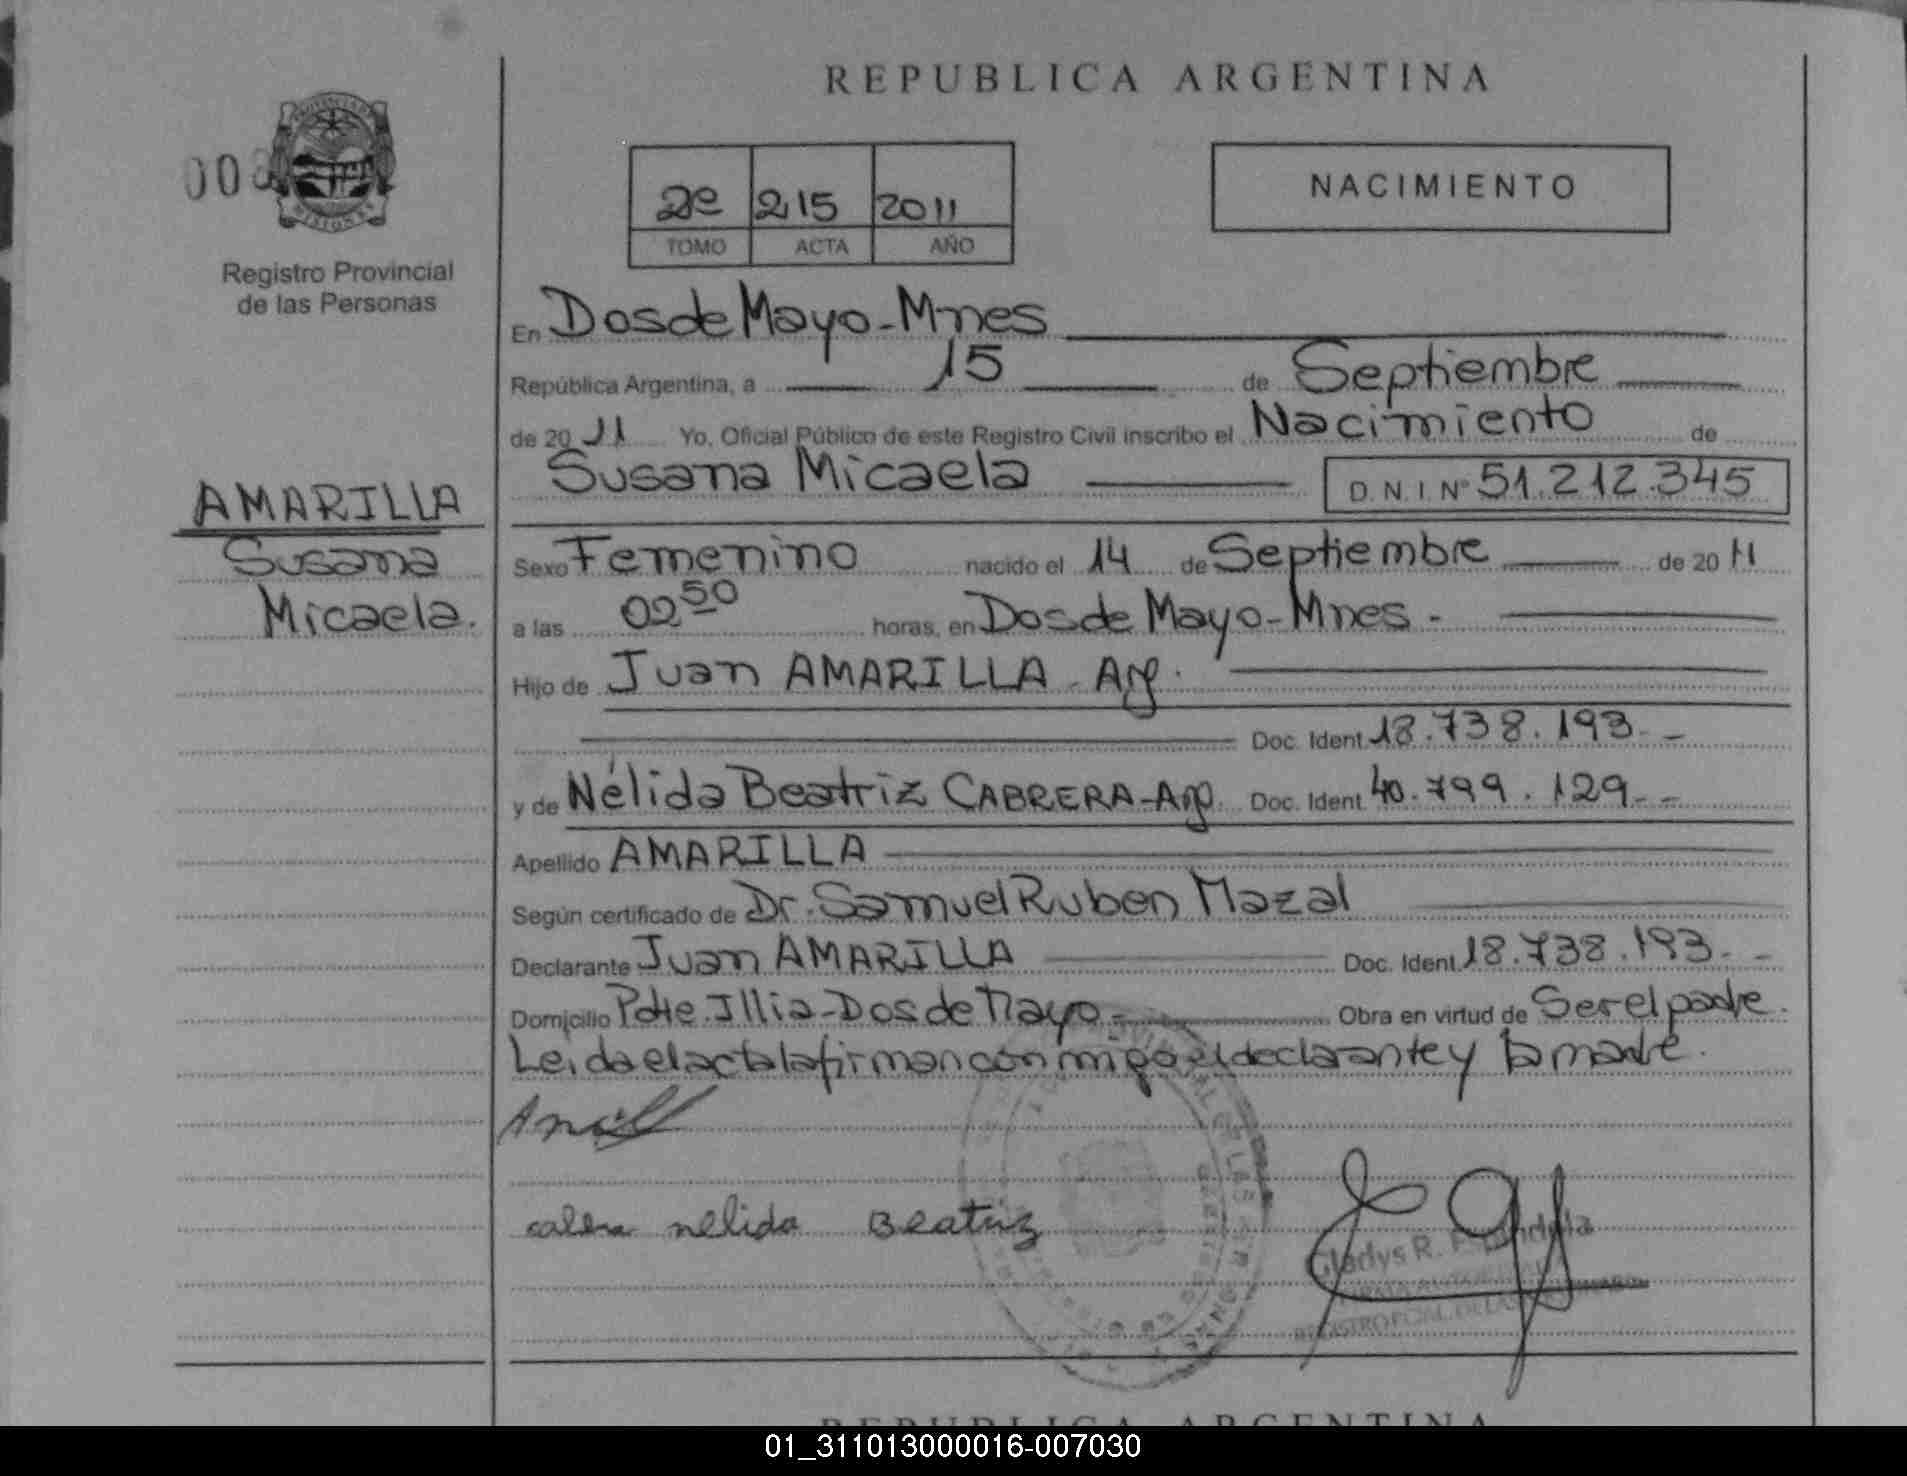 REPUBLICA ARGENTINA
00
Registro Provincial
de las Personas
2º 215 2011
TOMO ACTA AÑO
NACIMIENTO
En Dos de Mayo - Mnes
República Argentina, a 15 de Septiembre
de 2011 Yo, Oficial Público de este Registro Civil inscribo el Nacimiento de
Susana Micaela D.N.I. Nº 51.212.345
AMARILLA
Susana
Micaela.
Sexo Femenino nacido el 14 de Septiembre de 2011
a las 02 50 horas, en Dos de Mayo - Mnes -
Hijo de Juan AMARILLA - Arg.
Doc. Ident. 18.738.193 - -
y de Nélida Beatriz CABRERA - Arg. Doc. Ident. 40.799.129 - -
Apellido AMARILLA
Según certificado de Dr. Samuel Ruben Mazal
Declarante Juan AMARILLA Doc. Ident. 18.738.193 - -
Domicilio Pdte. Illia - Dos de Mayo - Obra en virtud de Ser el padre.
Leida el acta la firman con migo el declarante y la madre.
nelida Beatriz
Gladys R.
REPUBLICA ARGENTINA
01_311013000016-007030